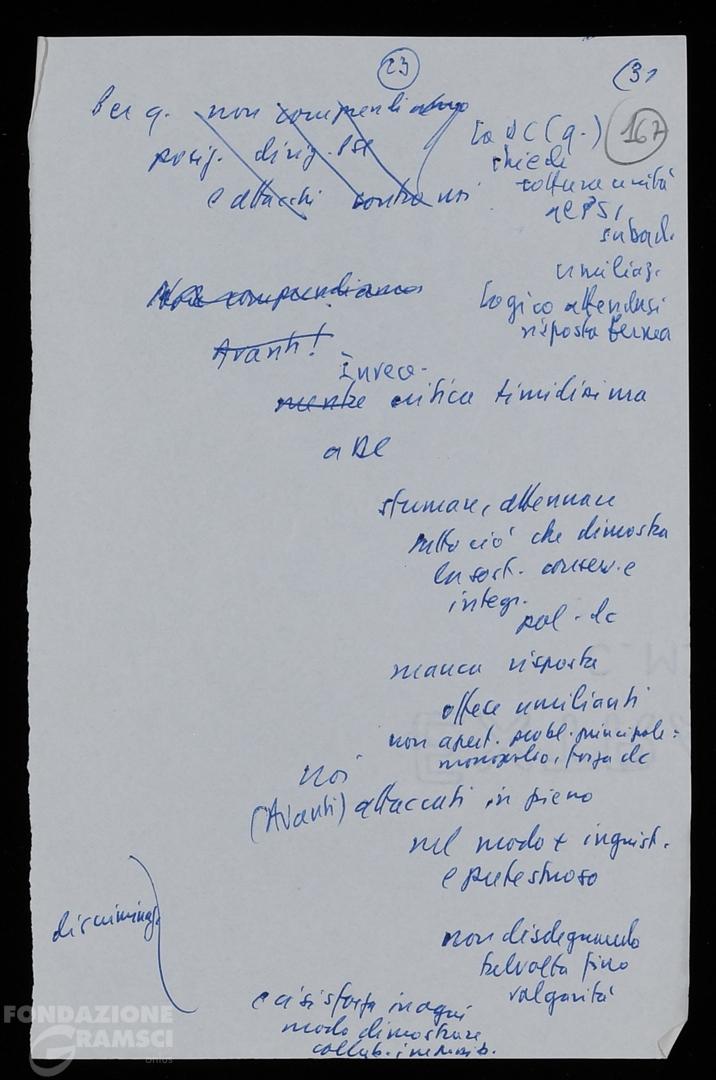 23
(31
167
Per q. non comprendiamo
posiz. dirig. PSI
e attacchi contro noi
La DC (q.)
chiede
rottura unità
al PSI
subord.
umiliaz.
Logico attendersi
risposta ferma
Non comprendiamo
Avanti!
Invece
mentre critica timidissima
a DC
sfumare, attenuare
tutto ciò che dimostra
la sost. conserv. e
integr.
pol. dc
manca risposta
offese umilianti
non apert. probl. principale:
monopolio, forza dc
noi
(Avanti) attaccati in pieno
nel modo + ingiust.
e pretestuoso
discriminaz.
non disdegnando
talvolta fino
volgarità
e ci si sforza in ogni
modo dimostrare
collab. imposs.
FONDAZIONE
GRAMSCI
onlus